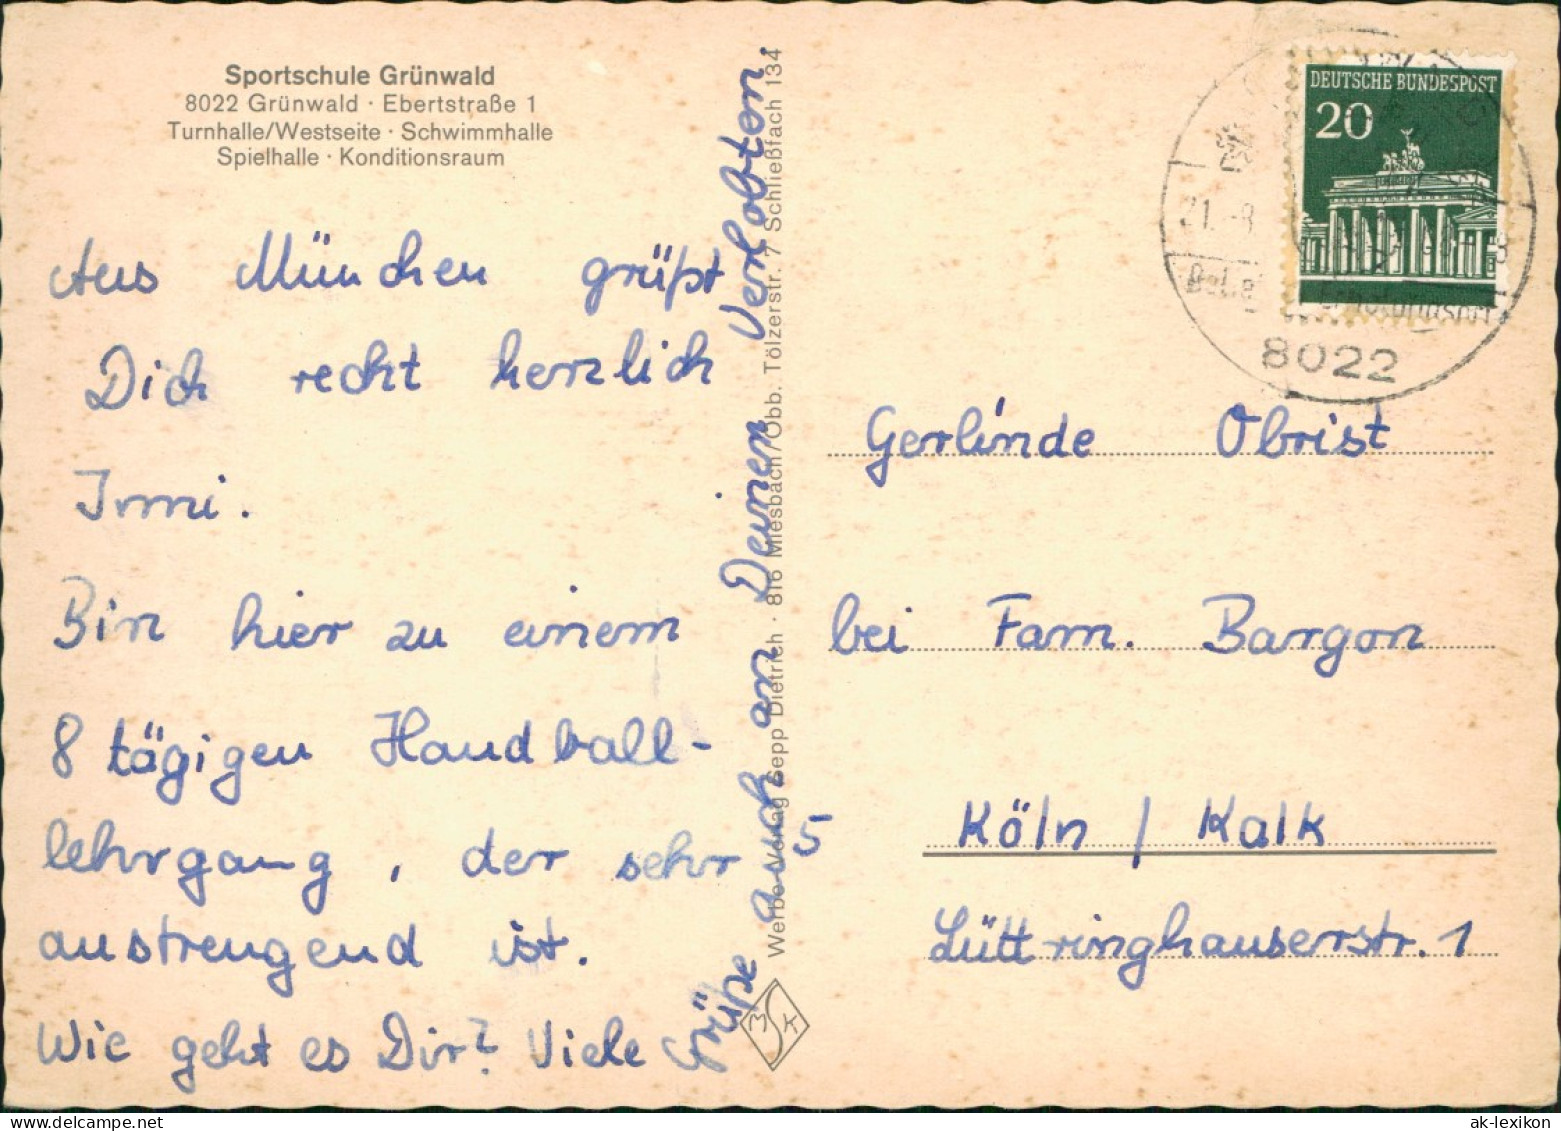 Sportschule Grünwald
8022 Grünwald · Ebertstraße 1
Turnhalle/Westseite · Schwimmhalle
Spielhalle · Konditionsraum
Aus München grüßt
Dich recht herzlich
Irmi.
Bin hier zu einem
8 tägigen Handball-
lehrgang, der sehr
anstrengend ist.
Wie geht es Dir? Viele
Grüße auch an Deinen Verlobten.
Werbe-Verlag Sepp Dietrich · 816 Miesbach/Obb. Tölzerstr. 7 Schließfach 134
MSK
DEUTSCHE BUNDESPOST
20
21.-8.
8022
Gerlinde Obrist
bei Fam. Bargon
5 Köln / Kalk
Lüttringhauserstr. 1
ak-lexikon.com